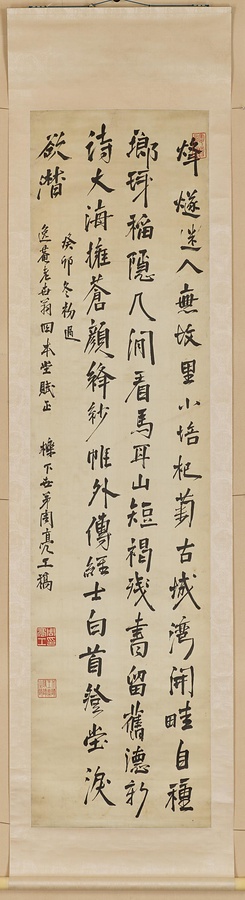 烽燧迷人無故里小怡杞菊古城灣開畦自種
鄉球稻隱几閒看馬耳山短褐殘書留舊德新
詩大海擁蒼顏絳紗帷外傳經士白首登堂淚
欲潸
癸卯冬杪過
逸菴老世翁四本堂賦正
櫟下世弟周亮工稿